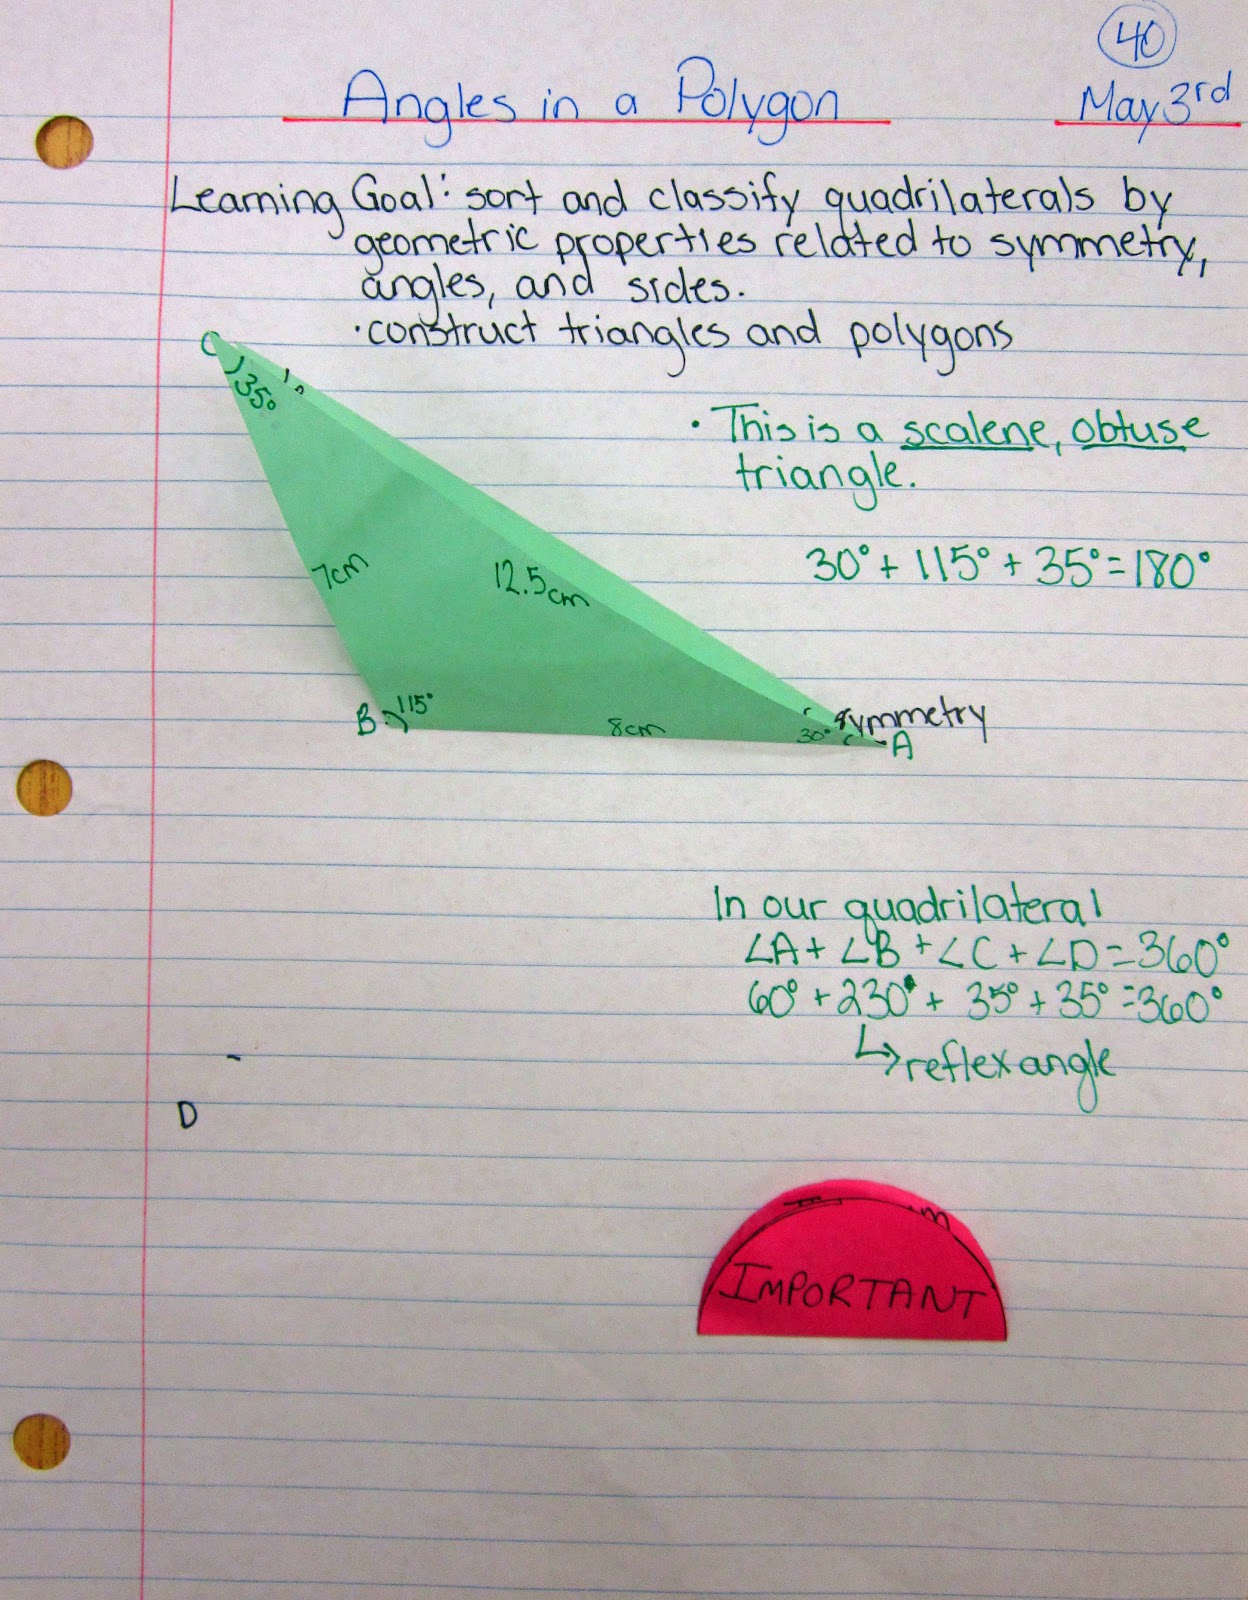 40
Angles in a Polygon
May 3rd
Learning Goal: sort and classify quadrilaterals by
geometric properties related to symmetry,
angles, and sides.
·construct triangles and polygons
C
35°
· This is a scalene, obtuse
triangle.
30° + 115° + 35° = 180°
7cm
12.5cm
B 115°
8cm
30°
symmetry
A
In our quadrilateral
∠A + ∠B + ∠C + ∠D = 360°
60° + 230° + 35° + 35° = 360°
↳ reflex angle
D
IMPORTANT